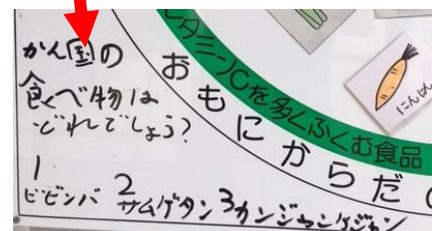 かん国の
食べ物は
どれでしょう?
1
ビビンバ
2
サムゲタン
3カンジャンケジャン
ビタミンCを多くふくむ食品
おもにからだの
にんじん